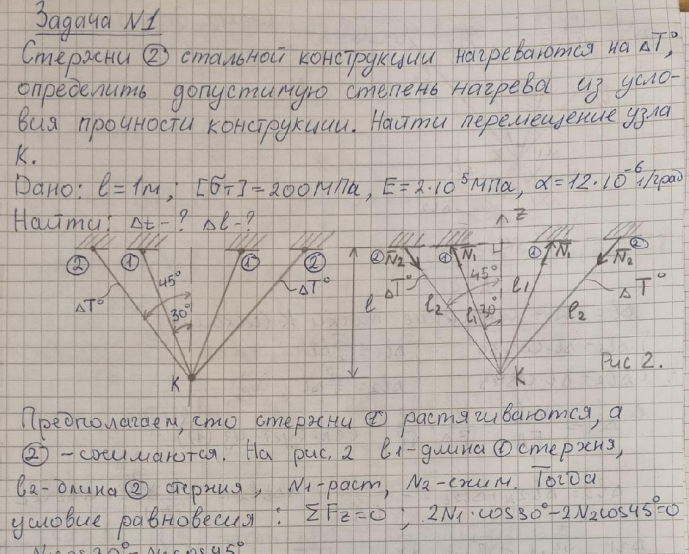 Задача N1
Стержни ② стальной конструкции нагреваются на ΔT°,
определить допустимую степень нагрева из усло-
вия прочности конструкции. Найти перемещение узла
К.
Дано: l=1м; [σт]=200МПа, E=2·10⁵МПа, α=12·10⁻⁶ 1/град
Найти: Δt-? Δl-?
② ① ① ②
ΔT° 45° 30° ΔT°
К
l
z
② N₂ ① N₁ ① N₁ ② N₂
ΔT° l₂ l₁ 45° 30° l₁ l₂ ΔT°
К
Рис 2.
Предполагаем, что стержни ① растягиваются, а
② -сжимаются. На рис. 2 l₁-длина ① стержня,
l₂-длина ② стержня, N₁-раст, N₂-сжим. Тогда
условие равновесия: ΣFz=0; 2N₁·cos30°-2N₂cos45°=0
N₁cos30°=N₂cos45°